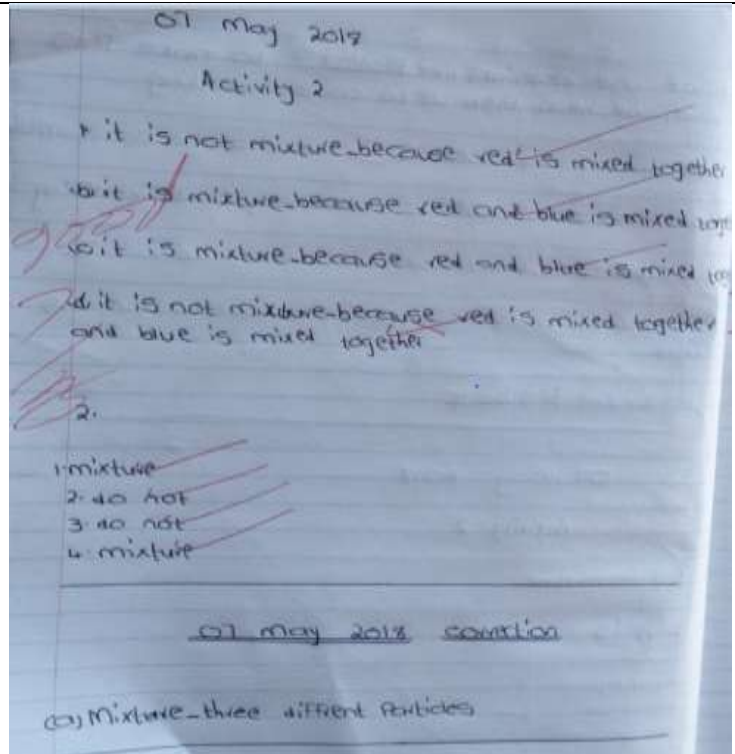 07 May 2018
Activity 2
it is not mixture-because red is mixed together
b. it is mixture-because red and blue is mixed
c. it is mixture-because red and blue is mixed
d. it is not mixture-because red is mixed together
and blue is mixed together
2.
1. mixture
2. do not
3. do not
4. mixture
07 may 2018
(a) Mixture-three diffrent Particles